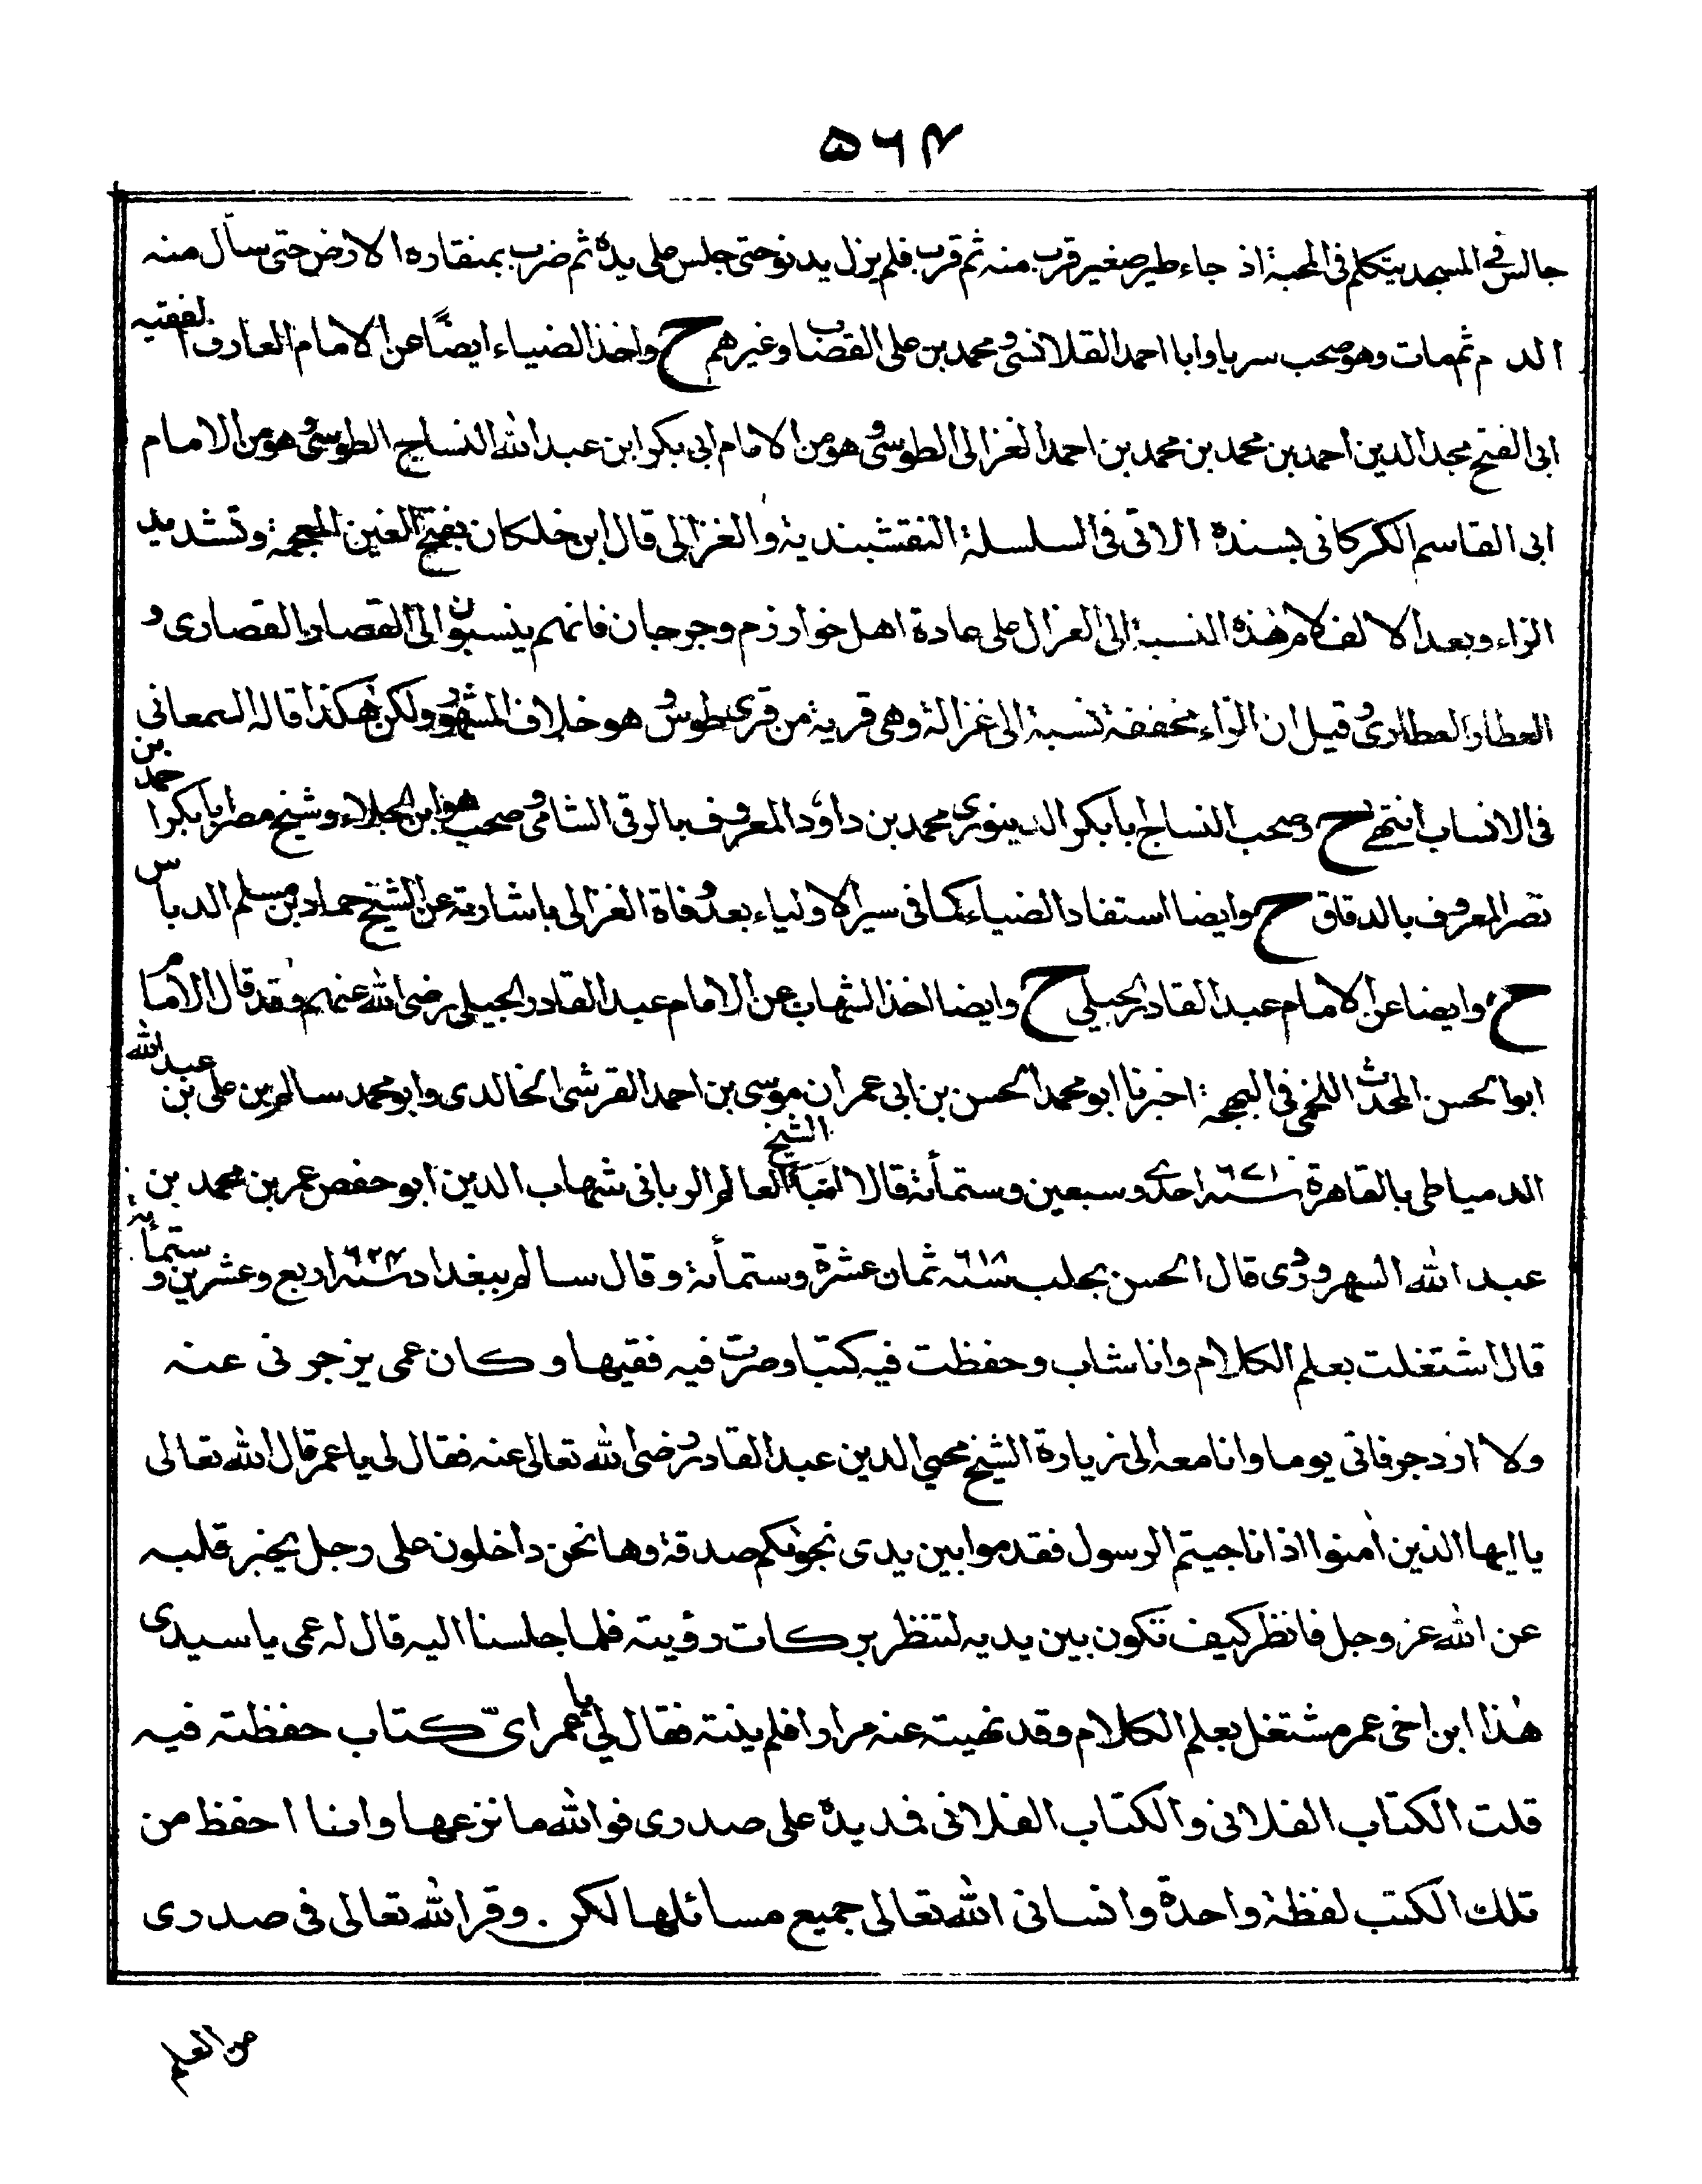 ۵۶۴
جالس فى المسجد يتكلم فى المحبة اذ جاء طير صغير قرب منه ثم قرب فلم يزل يدنو حتى جلس على يده ثم ضرب بمنقاره الارض حتى سال منه
الدم ثم مات وهو صحب سريا وابا احمد القلانسى ومحمد بن على القصاب وغيرهم ح واخذ الضياء ايضًا عن الامام العارف الفقيه
ابى الفتح مجد الدين احمد بن محمد بن محمد بن احمد الغزالى الطوسى وهو من الامام ابى بكر ابن عبد الله النساج الطوسى وهو من الامام
ابى القاسم الكركانى بسنده الاتى فى السلسلة النقشبندية والغزالى قال ابن خلكان بفتح الغين المعجمة وتشديد
الزاء وبعد الالف لام هذه النسبة الى الغزال على عادة اهل خوارزم وجرجان فانهم ينسبون الى القصار القصارى و
العطار العطارى وقيل ان الزاء مخففة نسبة الى غزالة وهى قرية من قرى طوس وهو خلاف المشهور ولكن هكذا قاله السمعانى
فى الانساب انتهى ح وصحب النساج ابا بكر الدينورى ومحمد بن داود المعروف بالرقى الشامى وصحب هو ابن الجلاء وشيخ مصر ابا بكر احمد بن
نصر المعروف بالدقاق ح وايضا استفاد الضياء كما فى سير الاولياء بعد وفاة الغزالى باشارته عن الشيخ حماد بن مسلم الدباس
ح وايضا عن الامام عبد القادر الجيلى ح وايضا اخذ الشهاب عن الامام عبد القادر الجيلى رضى الله عنهم وقد قال الامام
ابو الحسن المحدث اللخمى فى البهجة اخبرنا ابو محمد الحسن بن ابى عمران موسى بن احمد القرشى الخالدى وابو محمد سالم بن على بن عبد الله
الدمياطى بالقاهرة ٦٧١ سنه احدى وسبعين وستمأئة قالا انبأنا الشيخ العالم الربانى شهاب الدين ابو حفص عمر بن محمد بن
عبد الله السهروردى قال الحسن بحلب ٦١٨ سنه ثمان عشرة وستمأئة وقال سالم ببغداد ٦٢٤ سنه اربع وعشرين وستمأية
قال اشتغلت بعلم الكلام وانا شاب وحفظت فيه كتبا وصرت فيه فقيها وكان عمى يزجرنى عنه
ولا ازدجر فاتى يوما وانا معه الى زيارة الشيخ محيي الدين عبد القادر رضى الله تعالى عنه فقال لى يا عمر قال الله تعالى
يا ايها الذين امنوا اذا ناجيتم الرسول فقدموا بين يدى نجوٰىكم صدقة وها نحن داخلون على رجل يخبر قلبه
عن الله عز وجل فانظر كيف تكون بين يديه لتنظر بركات رؤيته فلما جلسنا اليه قال له عمى يا سيدى
هٰذا ابن اخى عمر مشتغل بعلم الكلام وقد نهيته عنه مرارا فلم ينته فقال لي يا عمر اىّ كتاب حفظته فيه
قلت الكتاب الفلانى والكتاب الفلانى فمد يده على صدرى فوالله ما نزعها وانا احفظ من
تلك الكتب لفظة واحدة وانسانى الله تعالى جميع مسائلها لكن . وقر الله تعالى فى صدرى
من العلم